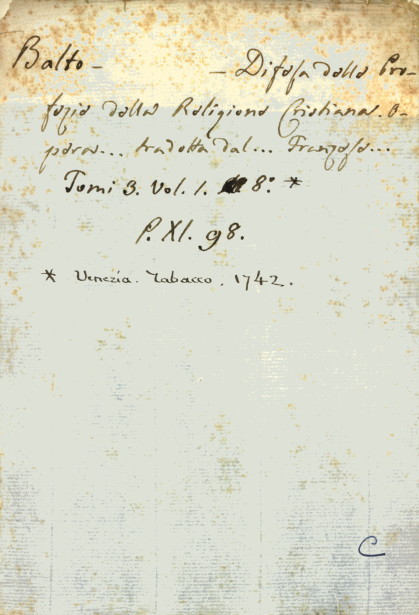 Balto - - Difesa delle Pro-
fezie della Religione Cristiana. O-
pera... tradotta dal... Franzese...
Tomi 3. Vol. 1. 8.° *
P. XI. 98.
* Venezia. Tabacco. 1742.
C